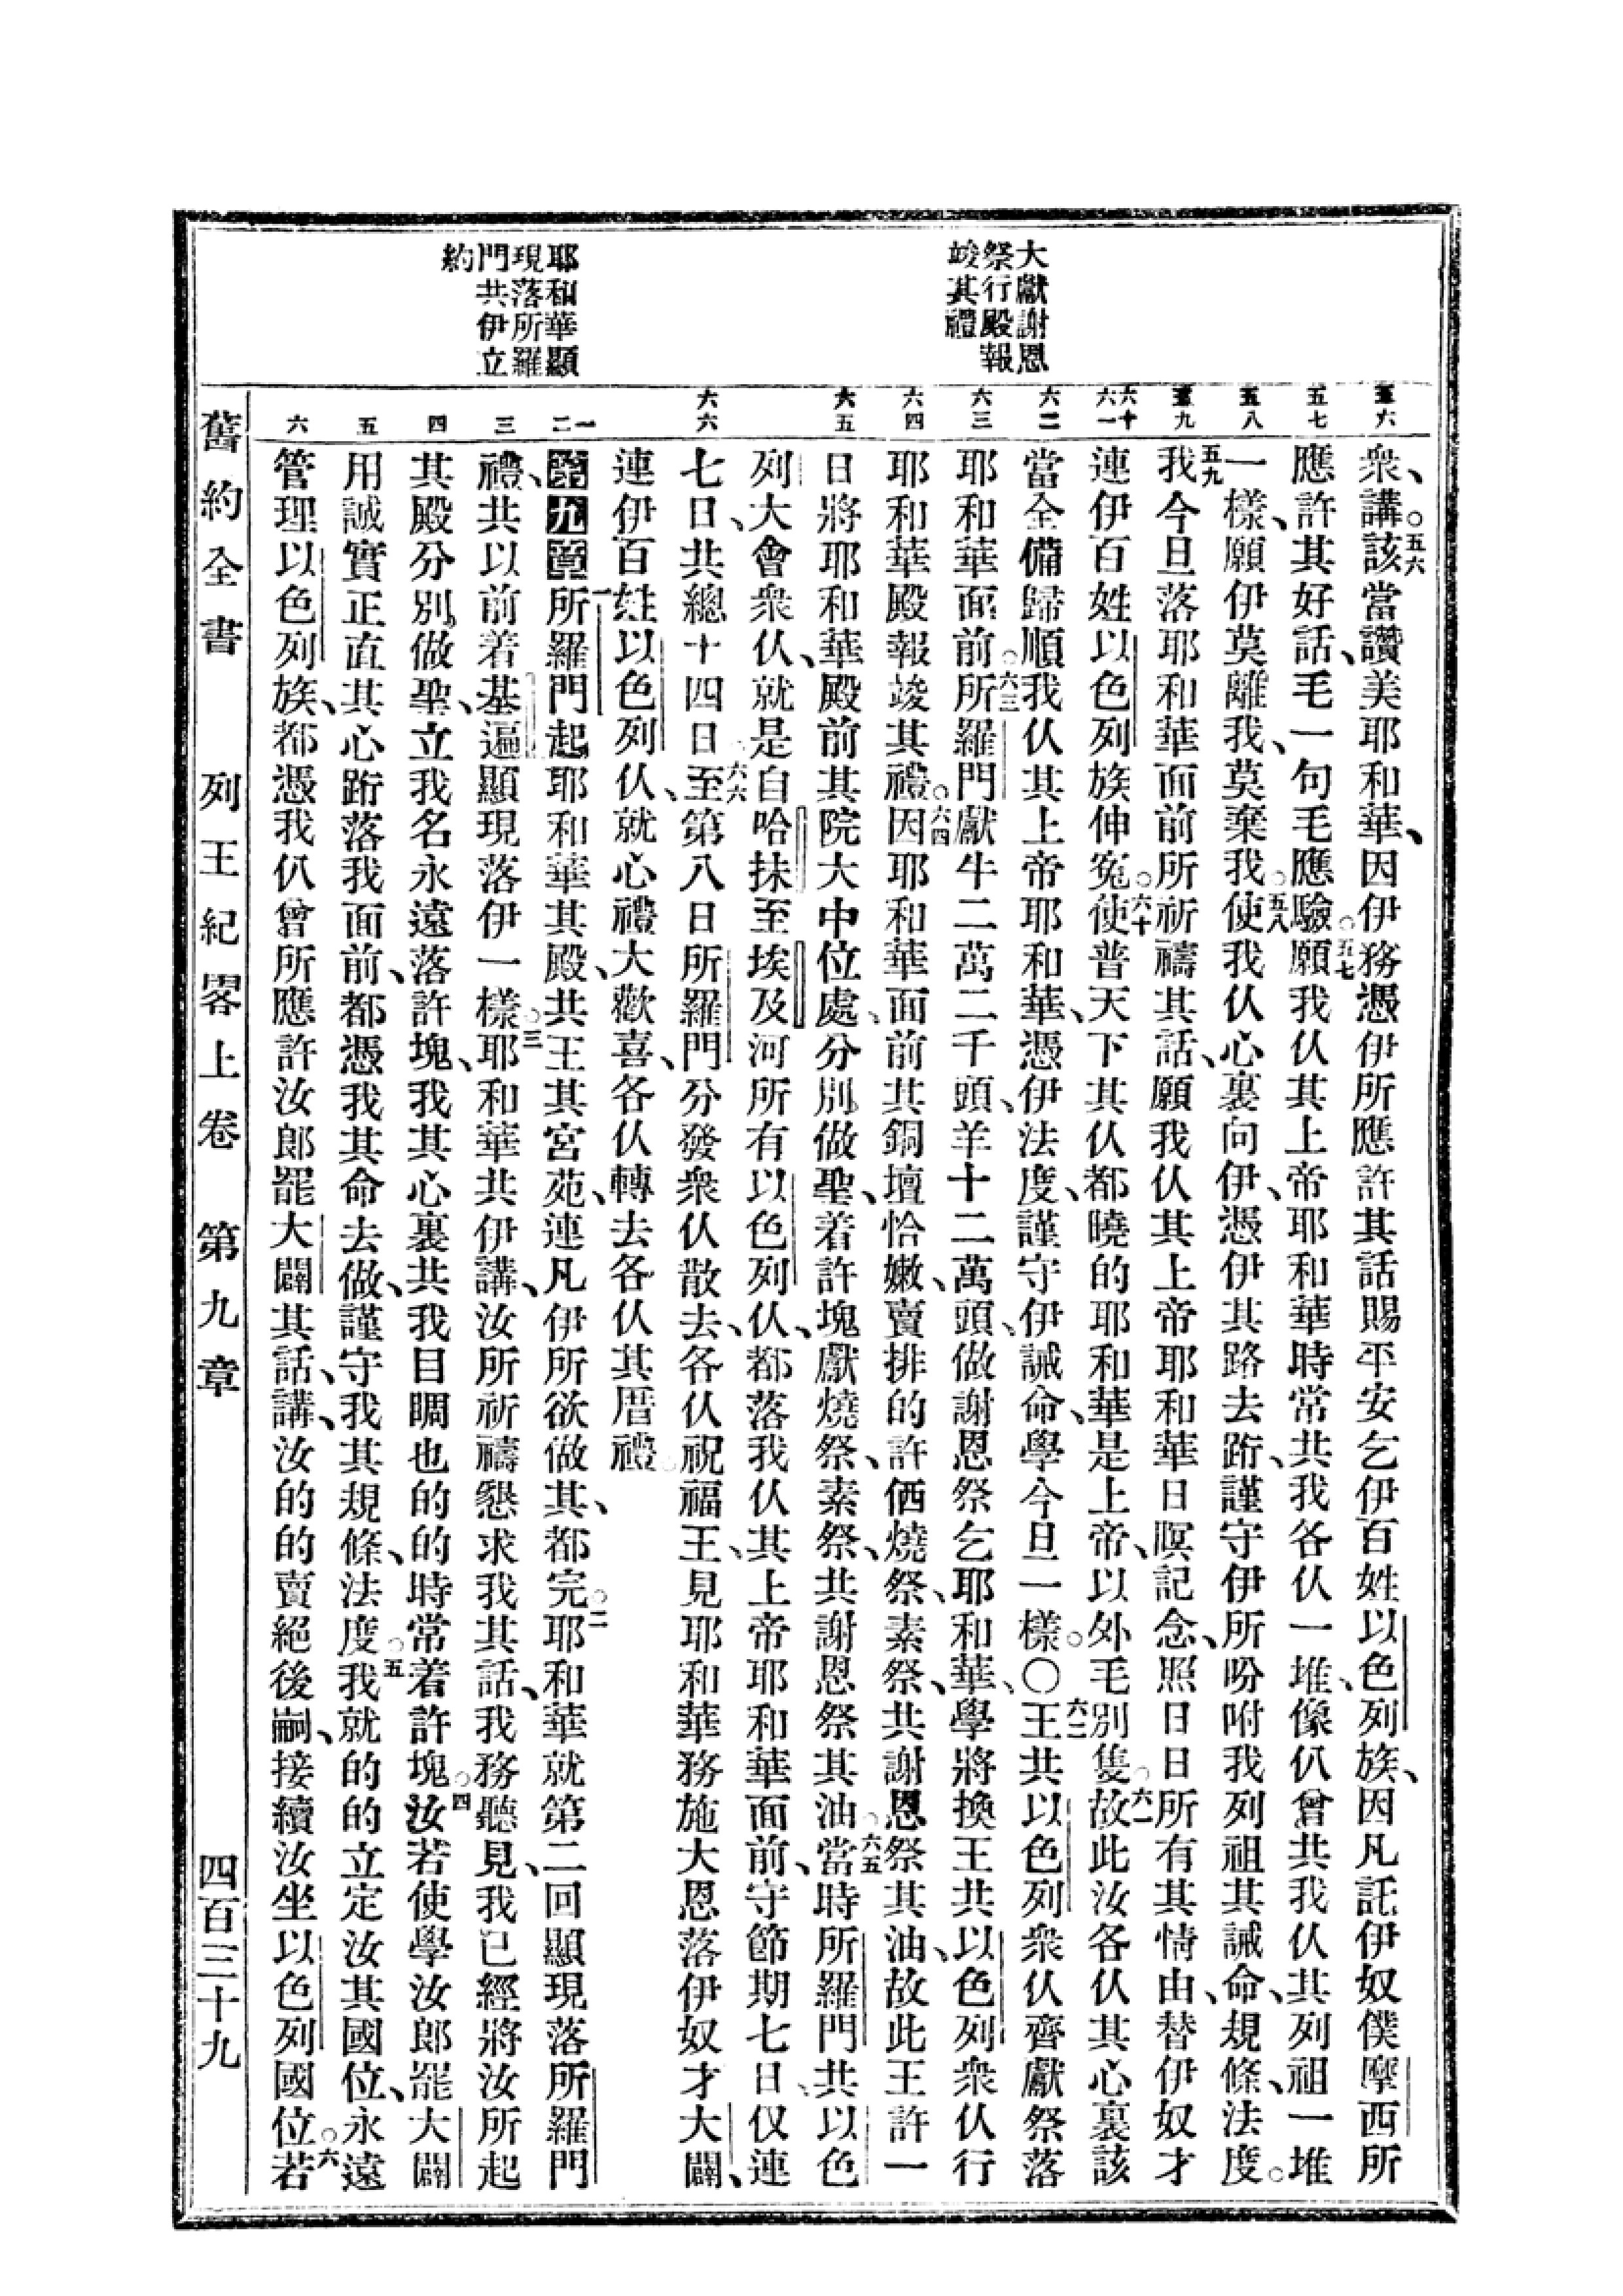 大獻謝恩
祭行殿報
竣其禮
耶和華顯
現落所羅
門共伊立
約
五六
五七
五八
五九
六十
六一
六二
六三
六四
六五
六六
一
二
三
四
五
六
衆、講。五六該當讚美耶和華、因伊務憑伊所應許其話賜平安乞伊百姓以色列族、因凡託伊奴僕摩西所
應許其好話、毛一句毛應驗。五七願我仈其上帝耶和華時常共我各仈一堆、像仈曾共我仈其列祖一堆
一樣、願伊莫離我、莫棄我。五八使我仈心裏向伊、憑伊其路去跔、謹守伊所吩咐我列祖其誡命、規條、法度。
五九我今旦落耶和華面前所祈禱其話、願我仈其上帝耶和華日暝記念、照日日所有其情由、替伊奴才
連伊百姓以色列族伸寃。六十使普天下其仈都曉的耶和華是上帝、以外毛別隻。六一故此汝各仈其心裏該
當全備歸順我仈其上帝耶和華、憑伊法度、謹守伊誡命、學今旦一樣。〇六二王共以色列衆仈齊獻祭落
耶和華面前。六三所羅門獻牛二萬二千頭、羊十二萬頭、做謝恩祭乞耶和華、學將換王共以色列衆仈行
耶和華殿報竣其禮。六四因耶和華面前其銅壇恰嫩、賣排的許価燒祭、素祭、共謝恩祭其油、故此王許一
日將耶和華殿前其院大中位處、分別做聖、着許塊獻燒祭、素祭、共謝恩祭其油。六五當時所羅門共以色
列大會衆仈、就是自哈抹至埃及河所有以色列仈、都落我仈其上帝耶和華面前、守節期七日、仅連
七日、共總十四日。六六至第八日所羅門分發衆仈散去、各仈祝福王、見耶和華務施大恩落伊奴才大闢、
連伊百姓以色列仈、就心禮大歡喜、各仈轉去各仈其厝禮。
第九章 一所羅門起耶和華其殿、共王其宮苑、連凡伊所欲做其、都完。二耶和華就第二回顯現落所羅門
禮、共以前着基遍顯現落伊一樣。三耶和華共伊講、汝所祈禱懇求我其話、我務聽見、我已經將汝所起
其殿分別做聖、立我名永遠落許塊、我其心裏共我目睭也的的時常着許塊。四汝若使學汝郎罷大闢
用誠實正直其心跔落我面前、都憑我其命去做、謹守我其規條、法度。五我就的的立定汝其國位、永遠
管理以色列族、都憑我仈曾所應許汝郎罷大闢其話、講、汝的的賣絕後嗣、接續汝坐以色列國位。六若
舊約全書　列王紀畧上卷　第九章　四百三十九